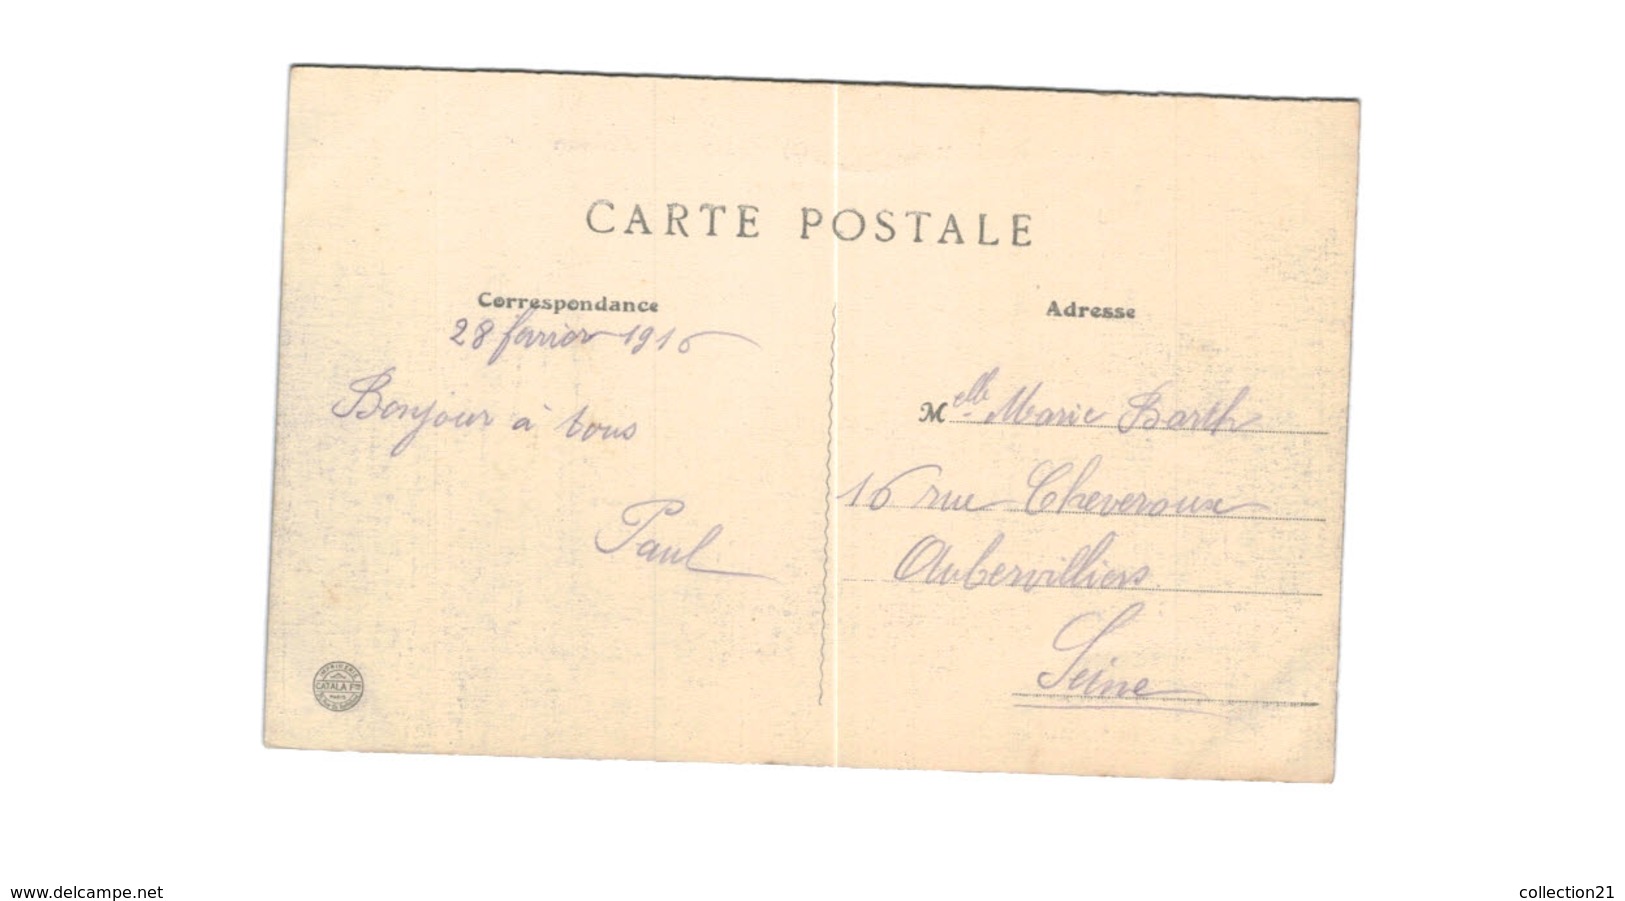 CARTE POSTALE
Correspondance
28 fevrier 1916
Bonjour à tous
Paul
Adresse
Melle Marie Barth
16 rue Cheveroux
Aubervilliers
Seine
IMPRIMERIE
CATALA Fres
PARIS
www.delcampe.net
collection21